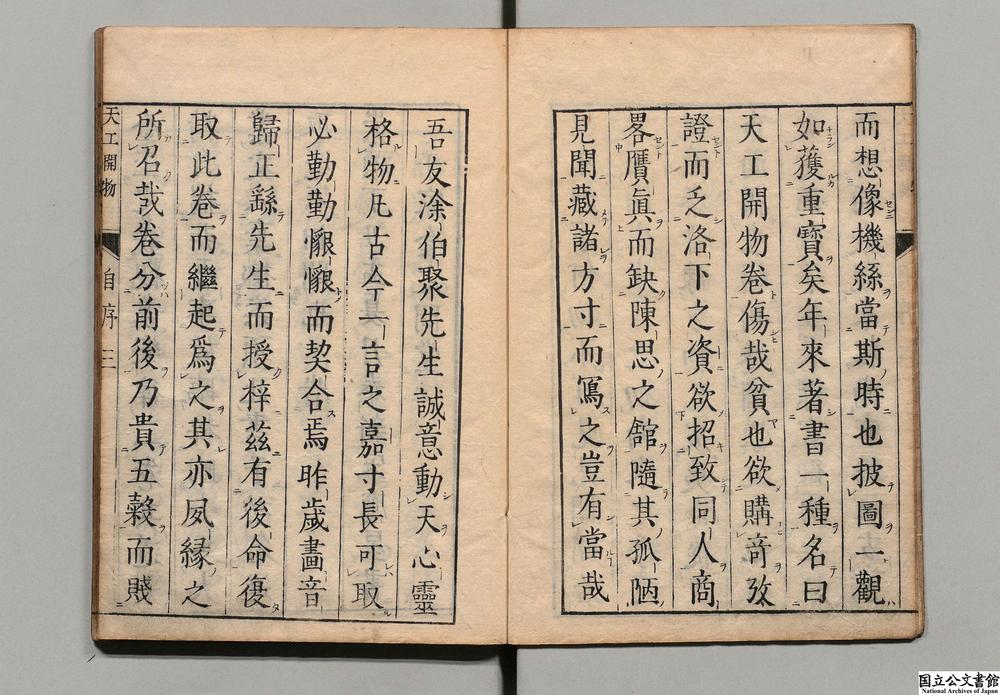 而想像機絲當斯時也披圖一觀
如獲重寶矣年來著書一種名曰
天工開物卷傷哉貧也欲購竒攷
證而乏洛下之資欲招致同人商
畧贋眞而缺陳思之館隨其孤陋
見聞藏諸方寸而寫之豈有當哉
吾友涂伯聚先生誠意動天心靈
格物凡古今一言之嘉寸長可取
必勤勤懇懇而契合焉昨歲畫音
歸正繇先生而授梓茲有後命復
取此卷而繼起爲之其亦夙縁之
所召哉卷分前後乃貴五穀而賤
天工開物 自序 三
国立公文書館
National Archives of Japan